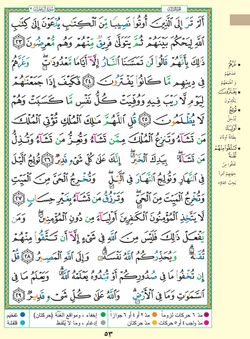 أَلَمْ تَرَ إِلَى الَّذِينَ أُوتُوا نَصِيبًا مِّنَ الْكِتَابِ يُدْعَوْنَ إِلَىٰ كِتَابِ
اللَّهِ لِيَحْكُمَ بَيْنَهُمْ ثُمَّ يَتَوَلَّىٰ فَرِيقٌ مِّنْهُمْ وَهُم مُّعْرِضُونَ ٢٣
ذَٰلِكَ بِأَنَّهُمْ قَالُوا لَن تَمَسَّنَا النَّارُ إِلَّا أَيَّامًا مَّعْدُودَاتٍ وَغَرَّهُمْ
فِي دِينِهِم مَّا كَانُوا يَفْتَرُونَ ٢٤ فَكَيْفَ إِذَا جَمَعْنَاهُمْ
لِيَوْمٍ لَّا رَيْبَ فِيهِ وَوُفِّيَتْ كُلُّ نَفْسٍ مَّا كَسَبَتْ وَهُمْ
لَا يُظْلَمُونَ ٢٥ قُلِ اللَّهُمَّ مَالِكَ الْمُلْكِ تُؤْتِي الْمُلْكَ
مَن تَشَاءُ وَتَنزِعُ الْمُلْكَ مِمَّن تَشَاءُ وَتُعِزُّ مَن تَشَاءُ وَتُذِلُّ
مَن تَشَاءُ بِيَدِكَ الْخَيْرُ إِنَّكَ عَلَىٰ كُلِّ شَيْءٍ قَدِيرٌ ٢٦ تُولِجُ اللَّيْلَ
فِي النَّهَارِ وَتُولِجُ النَّهَارَ فِي اللَّيْلِ وَتُخْرِجُ الْحَيَّ مِنَ الْمَيِّتِ
وَتُخْرِجُ الْمَيِّتَ مِنَ الْحَيِّ وَتَرْزُقُ مَن تَشَاءُ بِغَيْرِ حِسَابٍ ٢٧
لَّا يَتَّخِذِ الْمُؤْمِنُونَ الْكَافِرِينَ أَوْلِيَاءَ مِن دُونِ الْمُؤْمِنِينَ وَمَن
يَفْعَلْ ذَٰلِكَ فَلَيْسَ مِنَ اللَّهِ فِي شَيْءٍ إِلَّا أَن تَتَّقُوا مِنْهُمْ
تُقَاةً وَيُحَذِّرُكُمُ اللَّهُ نَفْسَهُ وَإِلَى اللَّهِ الْمَصِيرُ ٢٨ قُلْ إِن
تُخْفُوا مَا فِي صُدُورِكُمْ أَوْ تُبْدُوهُ يَعْلَمْهُ اللَّهُ وَيَعْلَمُ مَا فِي
السَّمَاوَاتِ وَمَا فِي الْأَرْضِ وَاللَّهُ عَلَىٰ كُلِّ شَيْءٍ قَدِيرٌ ٢٩
٥٣